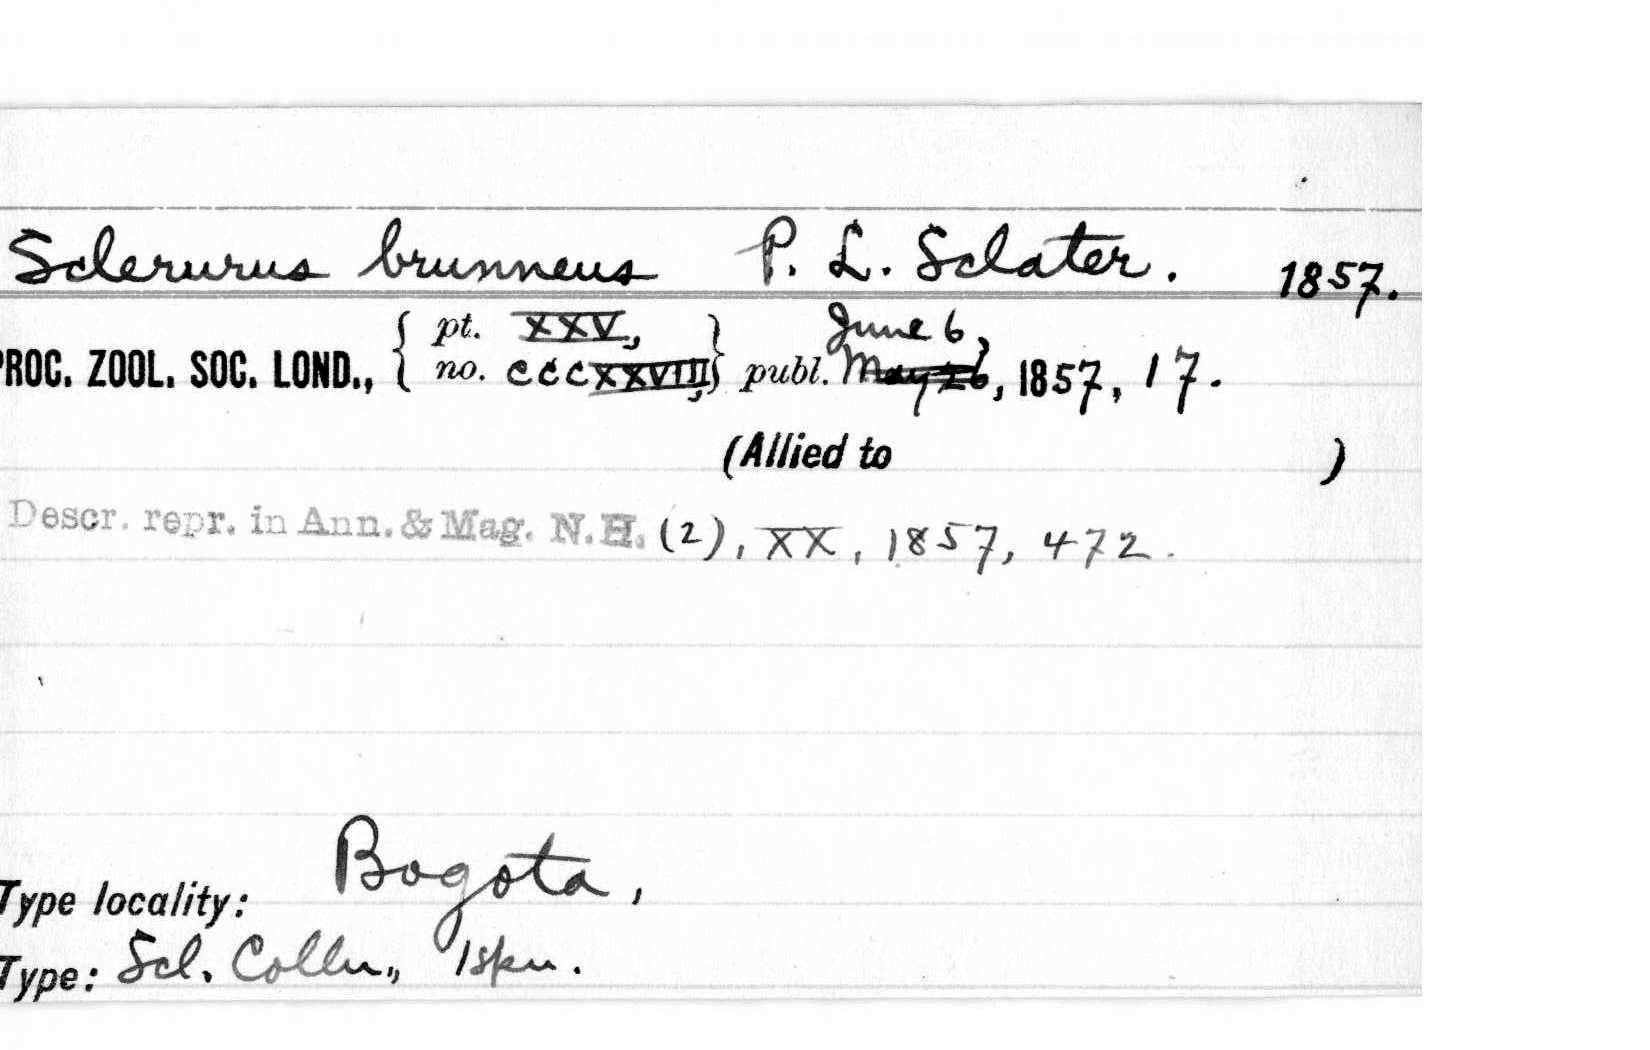 Sclerurus brunneus P. L. Sclater. 1857.
pt. XXV, June 6,
PROC. ZOOL. SOC. LOND., { no. CCCXXVIII, } publ. May 26, 1857, 17.
(Allied to )
Descr. repr. in Ann. & Mag. N.H. (2), XX, 1857, 472.
Bogota,
Type locality:
Type: Scl. Colln., 1 spn.